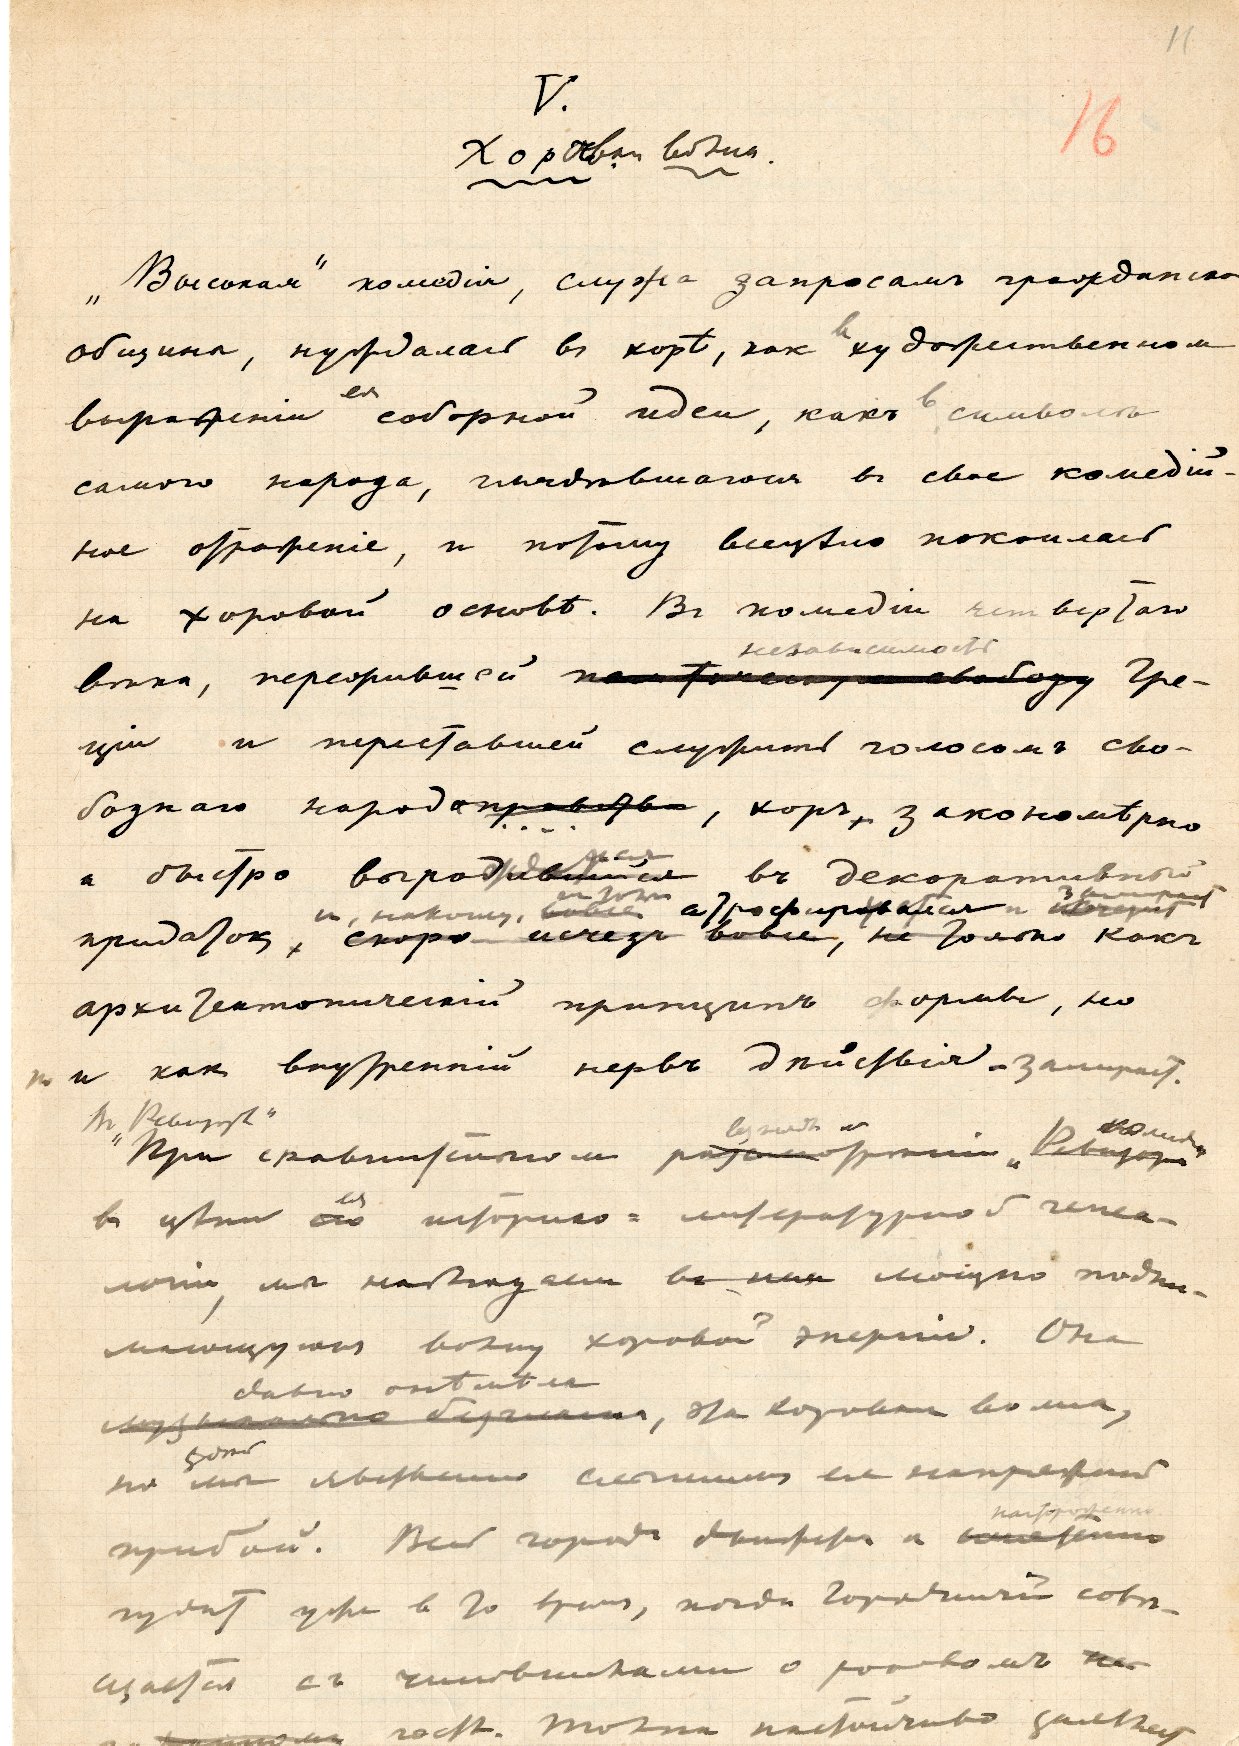 11
16
V.
Хоровая волна.
„Высокая" комедія, служа запросамъ гражданской
общины, нуждалась въ хорѣ, какъ въ художественномъ
выраженіи ея соборной идеи, какъ въ символѣ
самого народа, глядѣвшагося въ свое комедій-
ное отраженіе, и потому всецѣло покоилась
на хоровой основѣ. Въ комедіи четвертаго
вѣка, пережившей независимость Гре-
ціи и переставшей служить голосомъ сво-
боднаго народоправства, хоръ, закономѣрно
и быстро выродившійся въ декоративный
придатокъ, и, наконецъ, атрофировался и
не только какъ
архитектоническій принципъ формы, но
и какъ внутренній нервъ дѣйствія замираетъ.
Въ „Ревизорѣ"
При сравнительномъ взглядѣ „Ревизора"
въ цѣпи ея историко-литературной генеа-
логіи, мы наблюдаемъ мощно подни-
мающуюся волну хоровой энергіи. Она
давно онѣмѣла, эта хоровая волна,
но мы явственно слышимъ ея напряженный
прибой. Весь городъ движется и настороженно
гудитъ уже въ то время, когда Городничій совѣ-
щается съ чиновниками о роковомъ
гостѣ. Толпа настойчиво